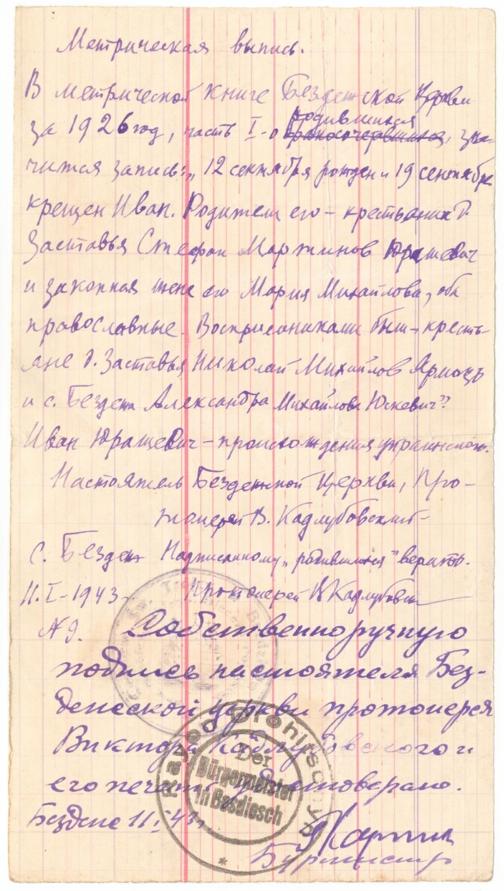 Метрическая выпись.
В метрической книге Бездежской Церкви
за 1926 год, часть I-о родившихся, зна-
чится запись: „12 сентября рожден и 19 сентября
крещен Иван. Родители его - крестьянин д.
Заставья Стефан Мартинов Юрашевич
и законная жена его Мария Михайлова, оба
православные. Восприемниками были - кресть-
яне д. Заставья Николай Михайлов
и с. Бездеж Александра Михайлова Юскевич"
Иван Юрашевич - происхождения украинского.
Настоятель Бездежской Церкви, Про-
тоиерей В. Кадлубовский
с. Бездеж Надписанному „родившихся" верить.
11.I-1943 Протоиерей В Кадлубовский
№ 9. Собственноручную
подпись настоятеля Без-
дежской церкви протоиерея
Виктора Кадлубовского и
его печать
Der
Bürgermeister
in Besdiesch
Rayon Drohitschyn
Бездеж 11.I.43.
Бурмистр